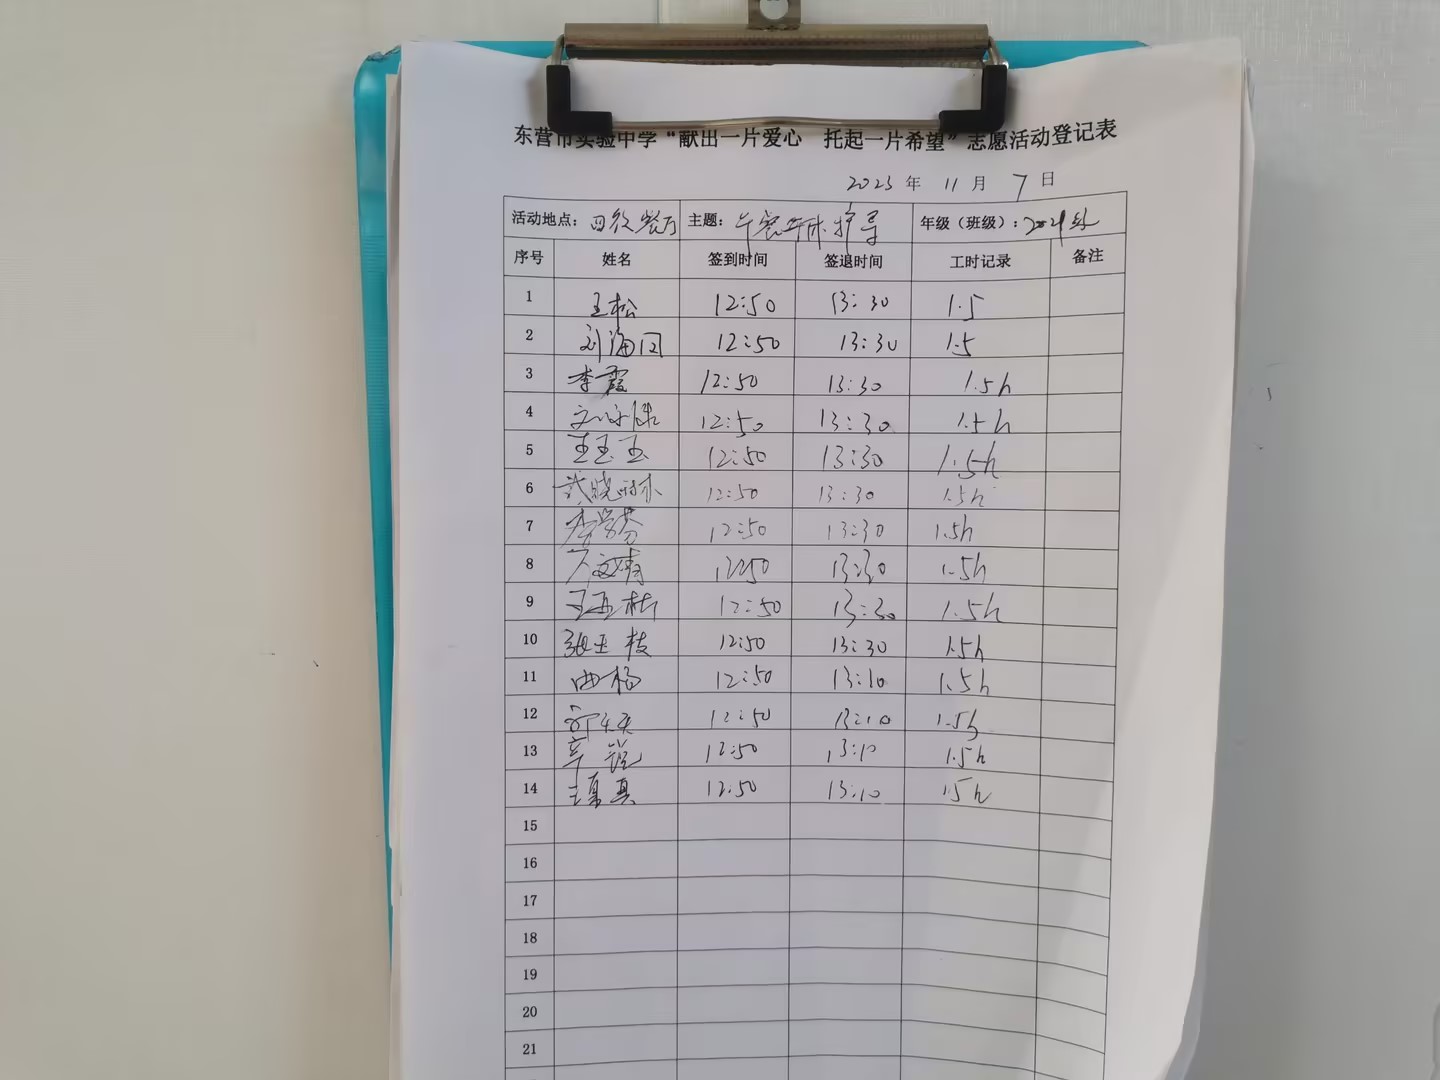 东营市实验中学“献出一片爱心 托起一片希望”志愿活动登记表
2023 年 11 月 7 日
活动地点： 餐厅 主题： 午餐 年级（班级）：
序号 姓名 签到时间 签退时间 工时记录 备注
1 王松 12:50 13:30 1.5
2 刘海 12:50 13:30 1.5
3 李霞 12:50 13:30 1.5h
4 12:50 13:30 1.5h
5 王玉玉 12:50 13:30 1.5h
6 武晓 12:50 13:30 1.5h
7 12:50 13:30 1.5h
8 12:50 13:30 1.5h
9 王 12:50 13:30 1.5h
10 张玉枝 12:50 13:30 1.5h
11 曲杨 12:50 13:10 1.5h
12 12:50 13:10 1.5h
13 辛锐 12:50 13:10 1.5h
14 王夏真 12:50 13:10 1.5h
15
16
17
18
19
20
21